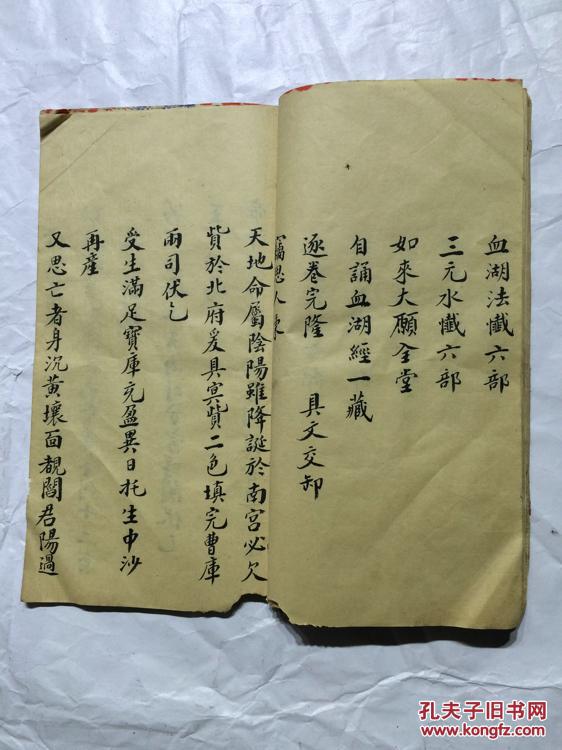 血湖法懺六部
三元水懺六部
如來大願全堂
自誦血湖經一藏
逐卷完隆 具文交卸
竊思人
天地命屬陰陽雖降誕於南宮必欠
貲於北府爰具冥貲二色填完曹庫
兩司伏乞
受生滿足寶庫充盈異日托生中沙
再產
又思亡者身沉黃壤面覩閻君陽過
孔夫子旧书网
kongfz.com